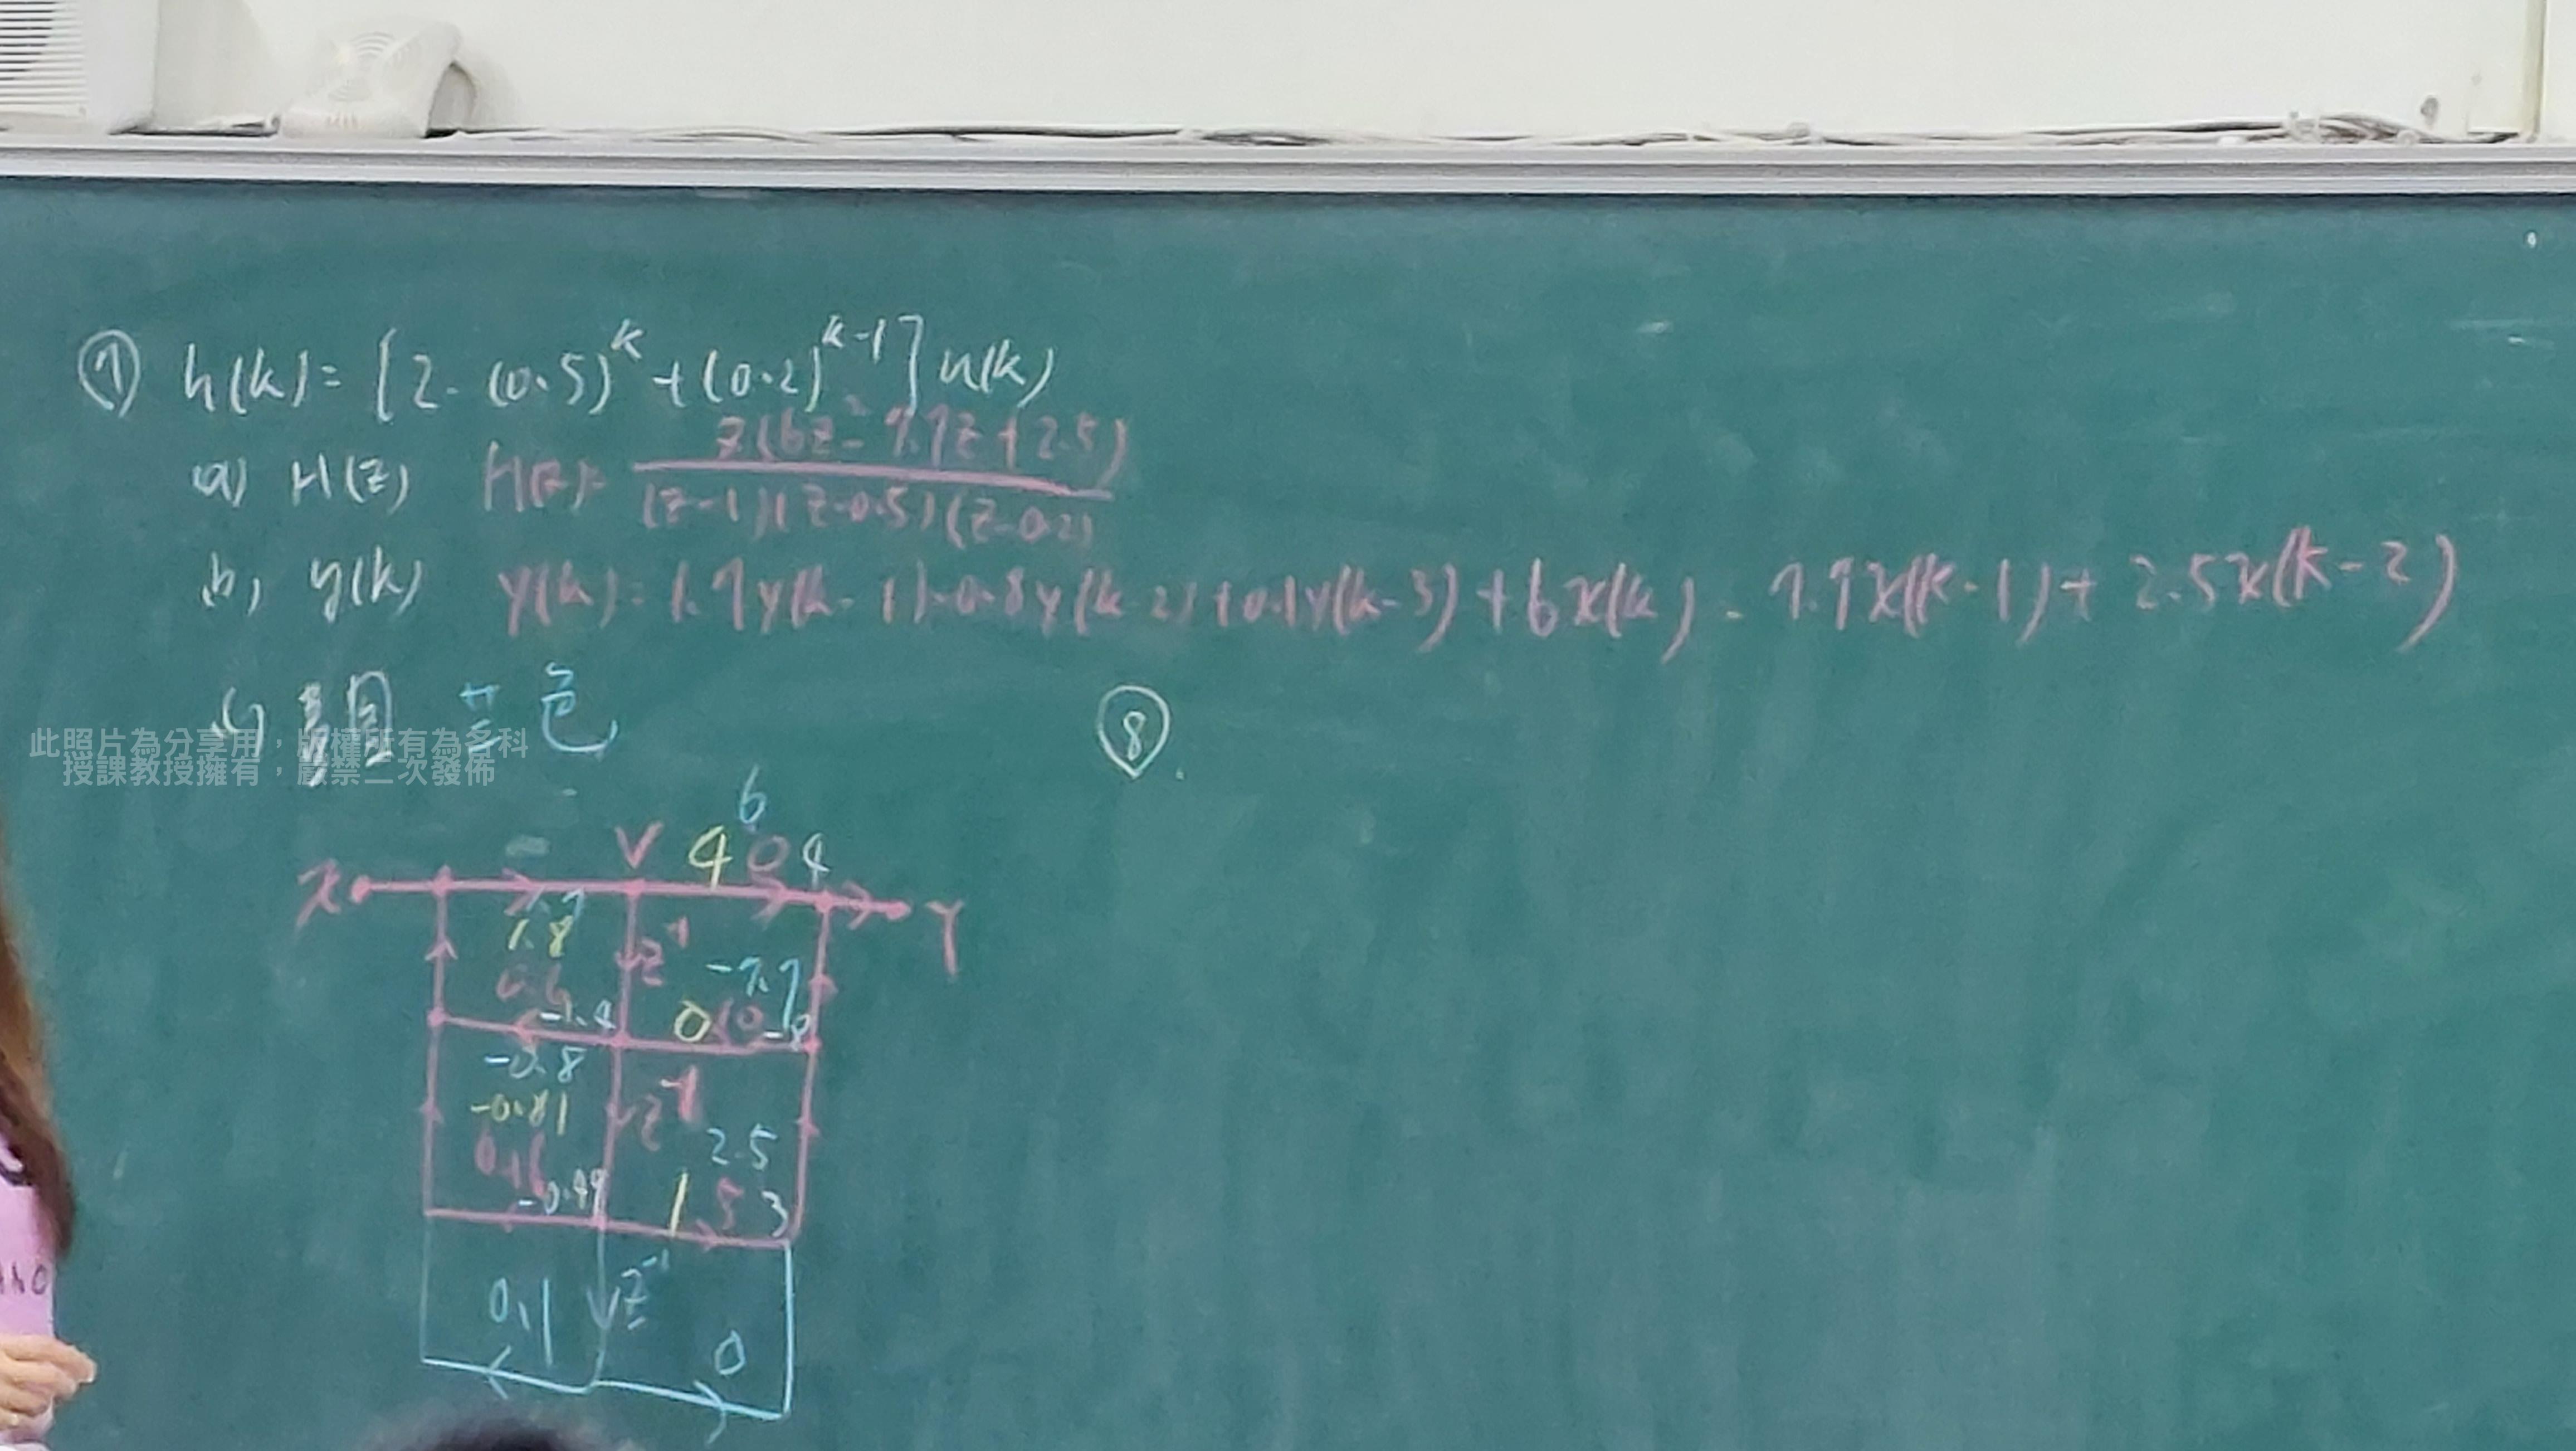 ⑦ h(k) = [2 - (0.5)^k + (0.2)^{k-1}] u(k)
a) H(z) H(z) = z(6z² - 7.7z + 2.5) / (z-1)(z-0.5)(z-0.2)
b) y(k) y(k) = 1.7y(k-1) - 0.8y(k-2) + 0.1y(k-3) + 6x(k) - 7.7x(k-1) + 2.5x(k-2)
c) 圖 藍色
⑧.
此照片為分享用，版權所有為各科
授課教授擁有，嚴禁二次發佈
6
V 4 0 4
X Y
1.7
1.8 z⁻¹
0.6 -7.7
-1.4 0 10
-0.8
-0.81 z⁻¹
0.16 2.5
-0.49 1 5 3
0.1 z⁻¹
0